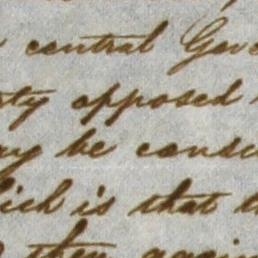 central Gove
rty opposed
ay be consi
hich is that th
then again